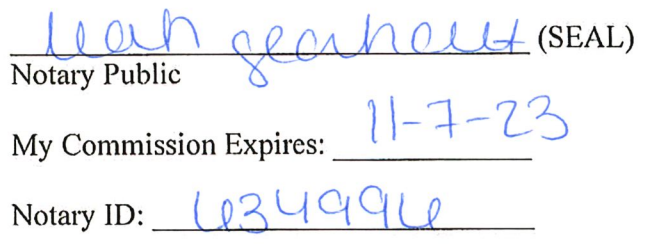 leah gearhart (SEAL)
Notary Public
My Commission Expires: 11-7-23
Notary ID: 6349946